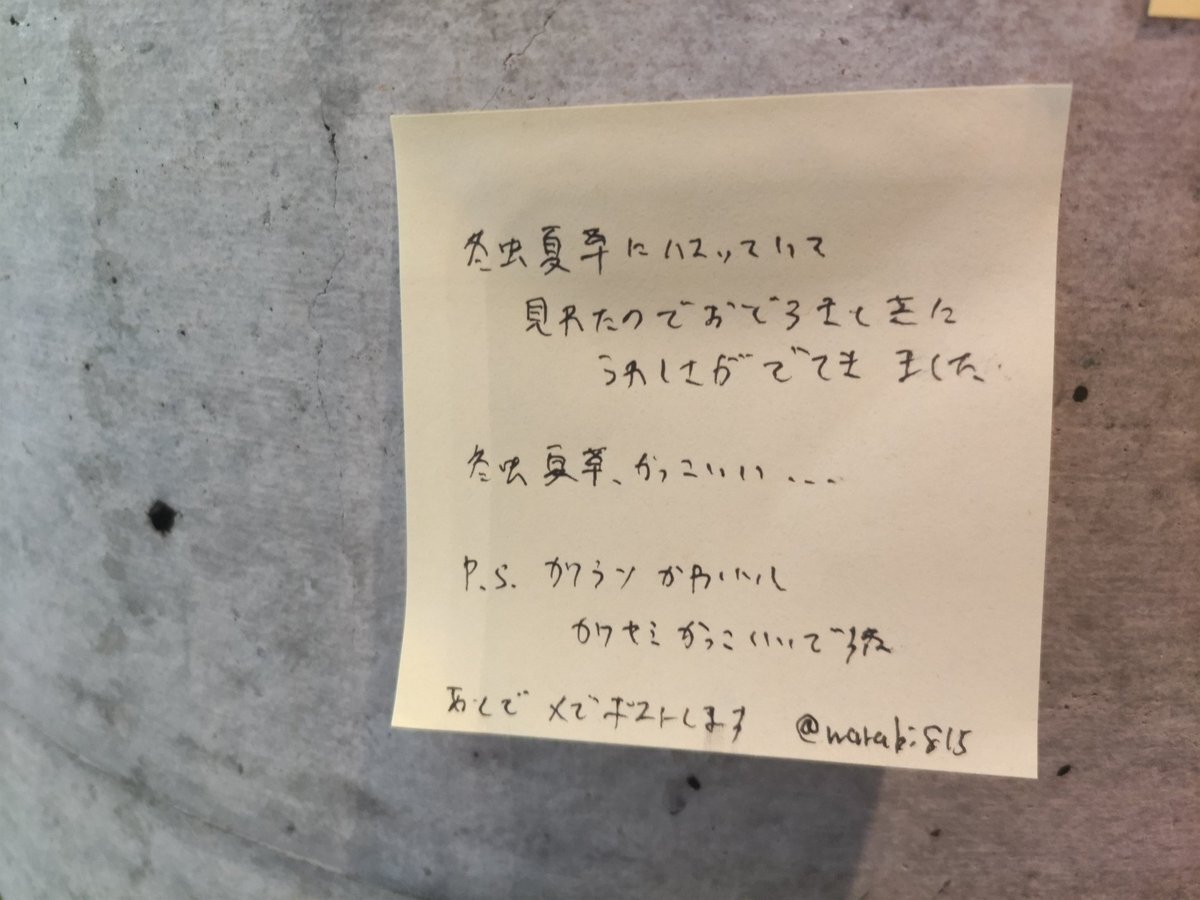 冬虫夏草にハスっていて
見れたのでおどろきときに
うれしさがでてきました
冬虫夏草、かっこいい....
P.S. カワラン かわいいし
カワセミかっこいいで
あとで Xでポストします @waraki815